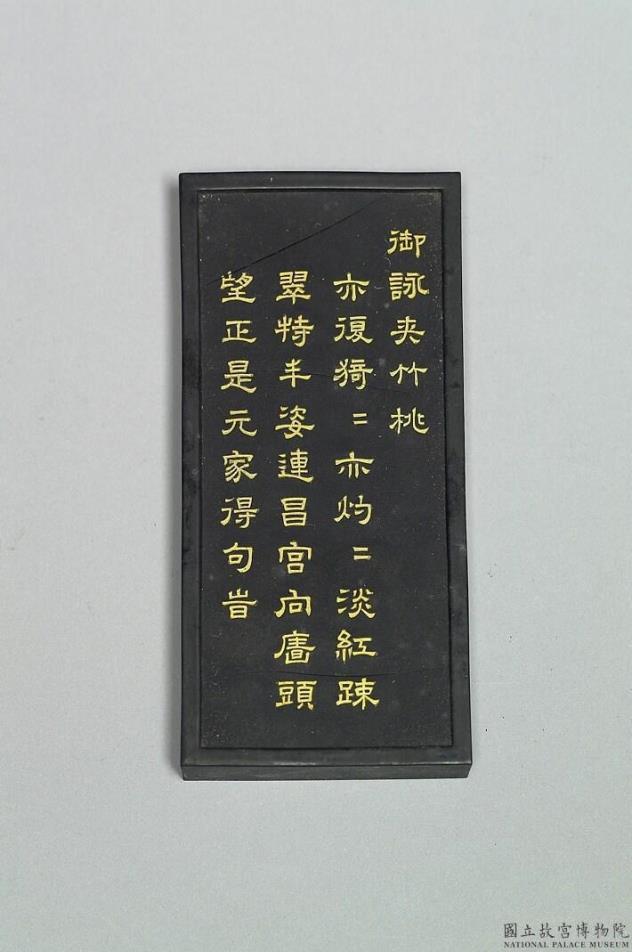 御詠夾竹桃
亦復猗〻亦灼〻淡紅踈
翠特丰姿連昌宫向廧頭
望正是元家得句旹
國立故宮博物院
NATIONAL PALACE MUSEUM